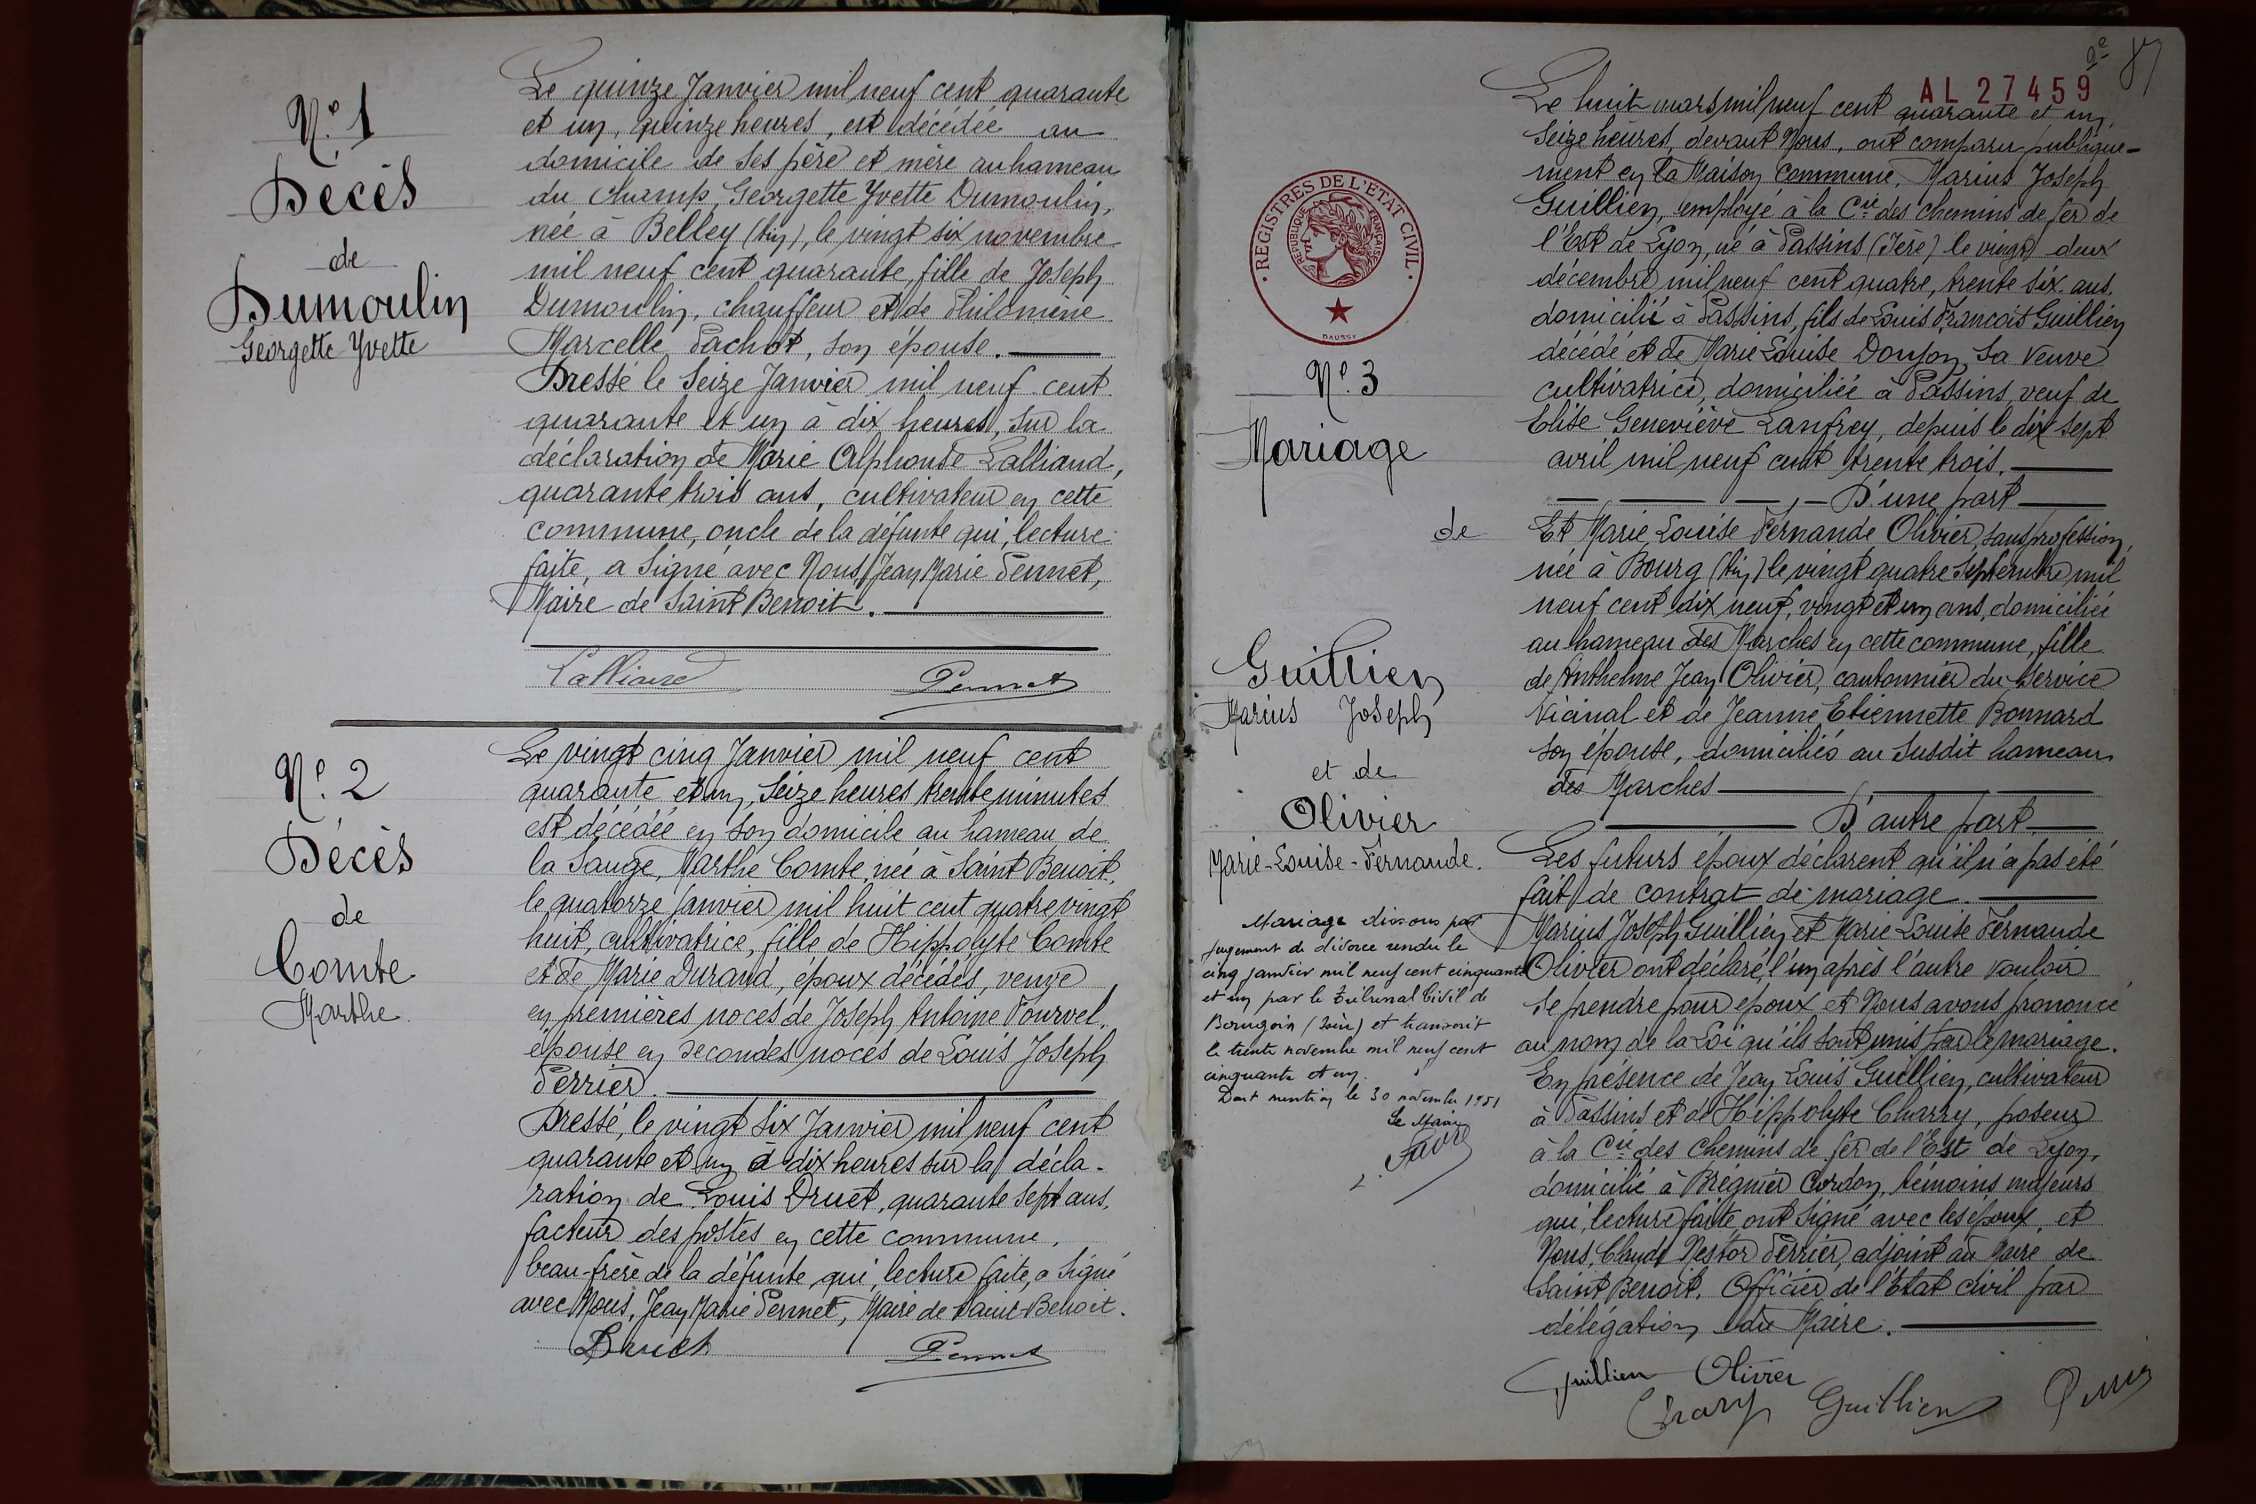 N.º 1
Décès
de
Dumoulin
Georgette Yvette
Le quinze Janvier mil neuf cent quarante
et un, quinze heures, est décédée au
domicile de ses père et mère au hameau
du Champ, Georgette Yvette Dumoulin,
née à Belley (Ain), le vingt six novembre
mil neuf cent quarante, fille de Joseph
Dumoulin, chauffeur et de Philomène
Marcelle Pachot, son épouse.
Dressé le Seize Janvier mil neuf cent
quarante et un à dix heures, sur la
déclaration de Marie Alphonse Lalliand,
quarante trois ans, cultivateur en cette
commune, oncle de la défunte qui, lecture
faite, a signé avec Nous, Jean Marie Pennet,
Maire de Saint Benoit.
Lalliand Pennet
N.º 2
Décès
de
Comte
Marthe
Le vingt cinq Janvier mil neuf cent
quarante et un, Seize heures trente minutes
est décédée en son domicile au hameau de
la Sauge, Marthe Comte, née à Saint Benoit,
le quatorze janvier mil huit cent quatre vingt
huit, cultivatrice, fille de Hippolyte Comte
et de Marie Durand, époux décédés, veuve
en premières noces de Joseph Antoine Fourvel,
épouse en secondes noces de Louis Joseph
Perrier.
Dressé, le vingt Six Janvier mil neuf cent
quarante et un à dix heures sur la décla-
ration de Louis Druet, quarante sept ans,
facteur des postes en cette commune,
beau-frère de la défunte qui, lecture faite, a signé
avec Nous, Jean Marie Pennet, Maire de Saint-Benoit.
Druet Pennet
2e 87
AL 27459
REGISTRES DE L'ETAT CIVIL
REPUBLIQUE FRANÇAISE
DAUSSY
N.º 3
Mariage
de
Guillien
Marius Joseph
et de
Olivier
Marie-Louise-Fernande.
Mariage dissous par
jugement de divorce rendu le
cinq janvier mil neuf cent cinquante
et un par le Tribunal Civil de
Bourgoin (Isère) et transcrit
le trente novembre mil neuf cent
cinquante et un.
Dont mention le 30 novembre 1951
Le Maire
Favre
Le huit mars mil neuf cent quarante et un,
Seize heures, devant Nous, ont comparu publique-
ment en la Maison Commune, Marius Joseph
Guillien, employé à la Cie des Chemins de fer de
l'Est de Lyon, né à Passins (Isère) le vingt deux
décembre mil neuf cent quatre, trente six ans,
domicilié à Passins, fils de Louis François Guillien
décédé et de Marie Louise Donjon, sa veuve
cultivatrice, domiciliée à Passins, veuf de
Elise Geneviève Lanfrey, depuis le dix sept
avril mil neuf cent trente trois.
D'une part
Et Marie Louise Fernande Olivier, sans profession,
née à Bourg (Ain) le vingt quatre Septembre mil
neuf cent dix neuf, vingt et un ans, domiciliée
au hameau des Marches en cette commune, fille
de Anthelme Jean Olivier, cantonnier du Service
Vicinal et de Jeanne Etiennette Bonnard
son épouse, domiciliés au susdit hameau
des Marches
D'autre part
Les futurs époux déclarent qu'il n'a pas été
fait de contrat de mariage.
Marius Joseph Guillien et Marie Louise Fernande
Olivier ont déclaré l'un après l'autre vouloir
se prendre pour époux et Nous avons prononcé
au nom de la Loi qu'ils sont unis par le mariage.
En présence de Jean Louis Guillien, cultivateur
à Passins et de Hippolyte Charry, poseur
à la Cie des Chemins de fer de l'Est de Lyon,
domicilié à Brégnier Cordon, témoins majeurs
qui, lecture faite, ont signé avec les époux et
Nous, Claude Nestor Perrier, adjoint au Maire de
Saint Benoit, Officier de l'Etat civil par
délégation du Maire.
Guillien Olivier
Charry Guillien